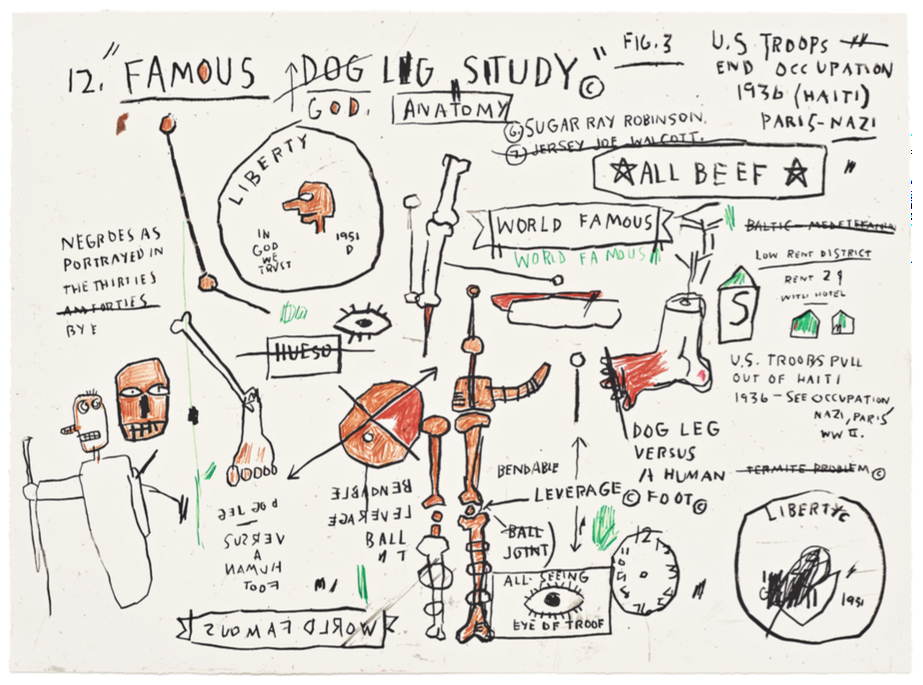 12. "FAMOUS DOG LEG STUDY" ©
GOD.
ANATOMY
FIG. 3
U.S. TROOPS
END OCCUPATION
1936 (HAITI)
PARIS-NAZI
(6) SUGAR RAY ROBINSON.
(7) JERSEY JOE WALCOTT.
☆ALL BEEF☆
LIBERTY
IN
GOD
WE
TRUST
1951
D
WORLD FAMOUS
WORLD FAMOUS
LOW RENT DISTRICT
RENT 2¢
WITH HOTEL
S
NEGROES AS
PORTRAYED IN
THE THIRTIES
BY E
HUESO
U.S. TROOPS PULL
OUT OF HAITI
1936 - SEE OCCUPATION
NAZI, PARIS
WW II.
TERMITE PROBLEM ©
DOG LEG
VERSUS
A HUMAN
© FOOT ©
BENDABLE
LEVERAGE
BALL
JOINT
DOG LEG
VERSUS
A
HUMAN
FOOT
BENDABLE
LEVERAGE
BALL
ALL-SEEING
EYE OF TROOF
12
LIBERTY
1951
WORLD FAMOUS